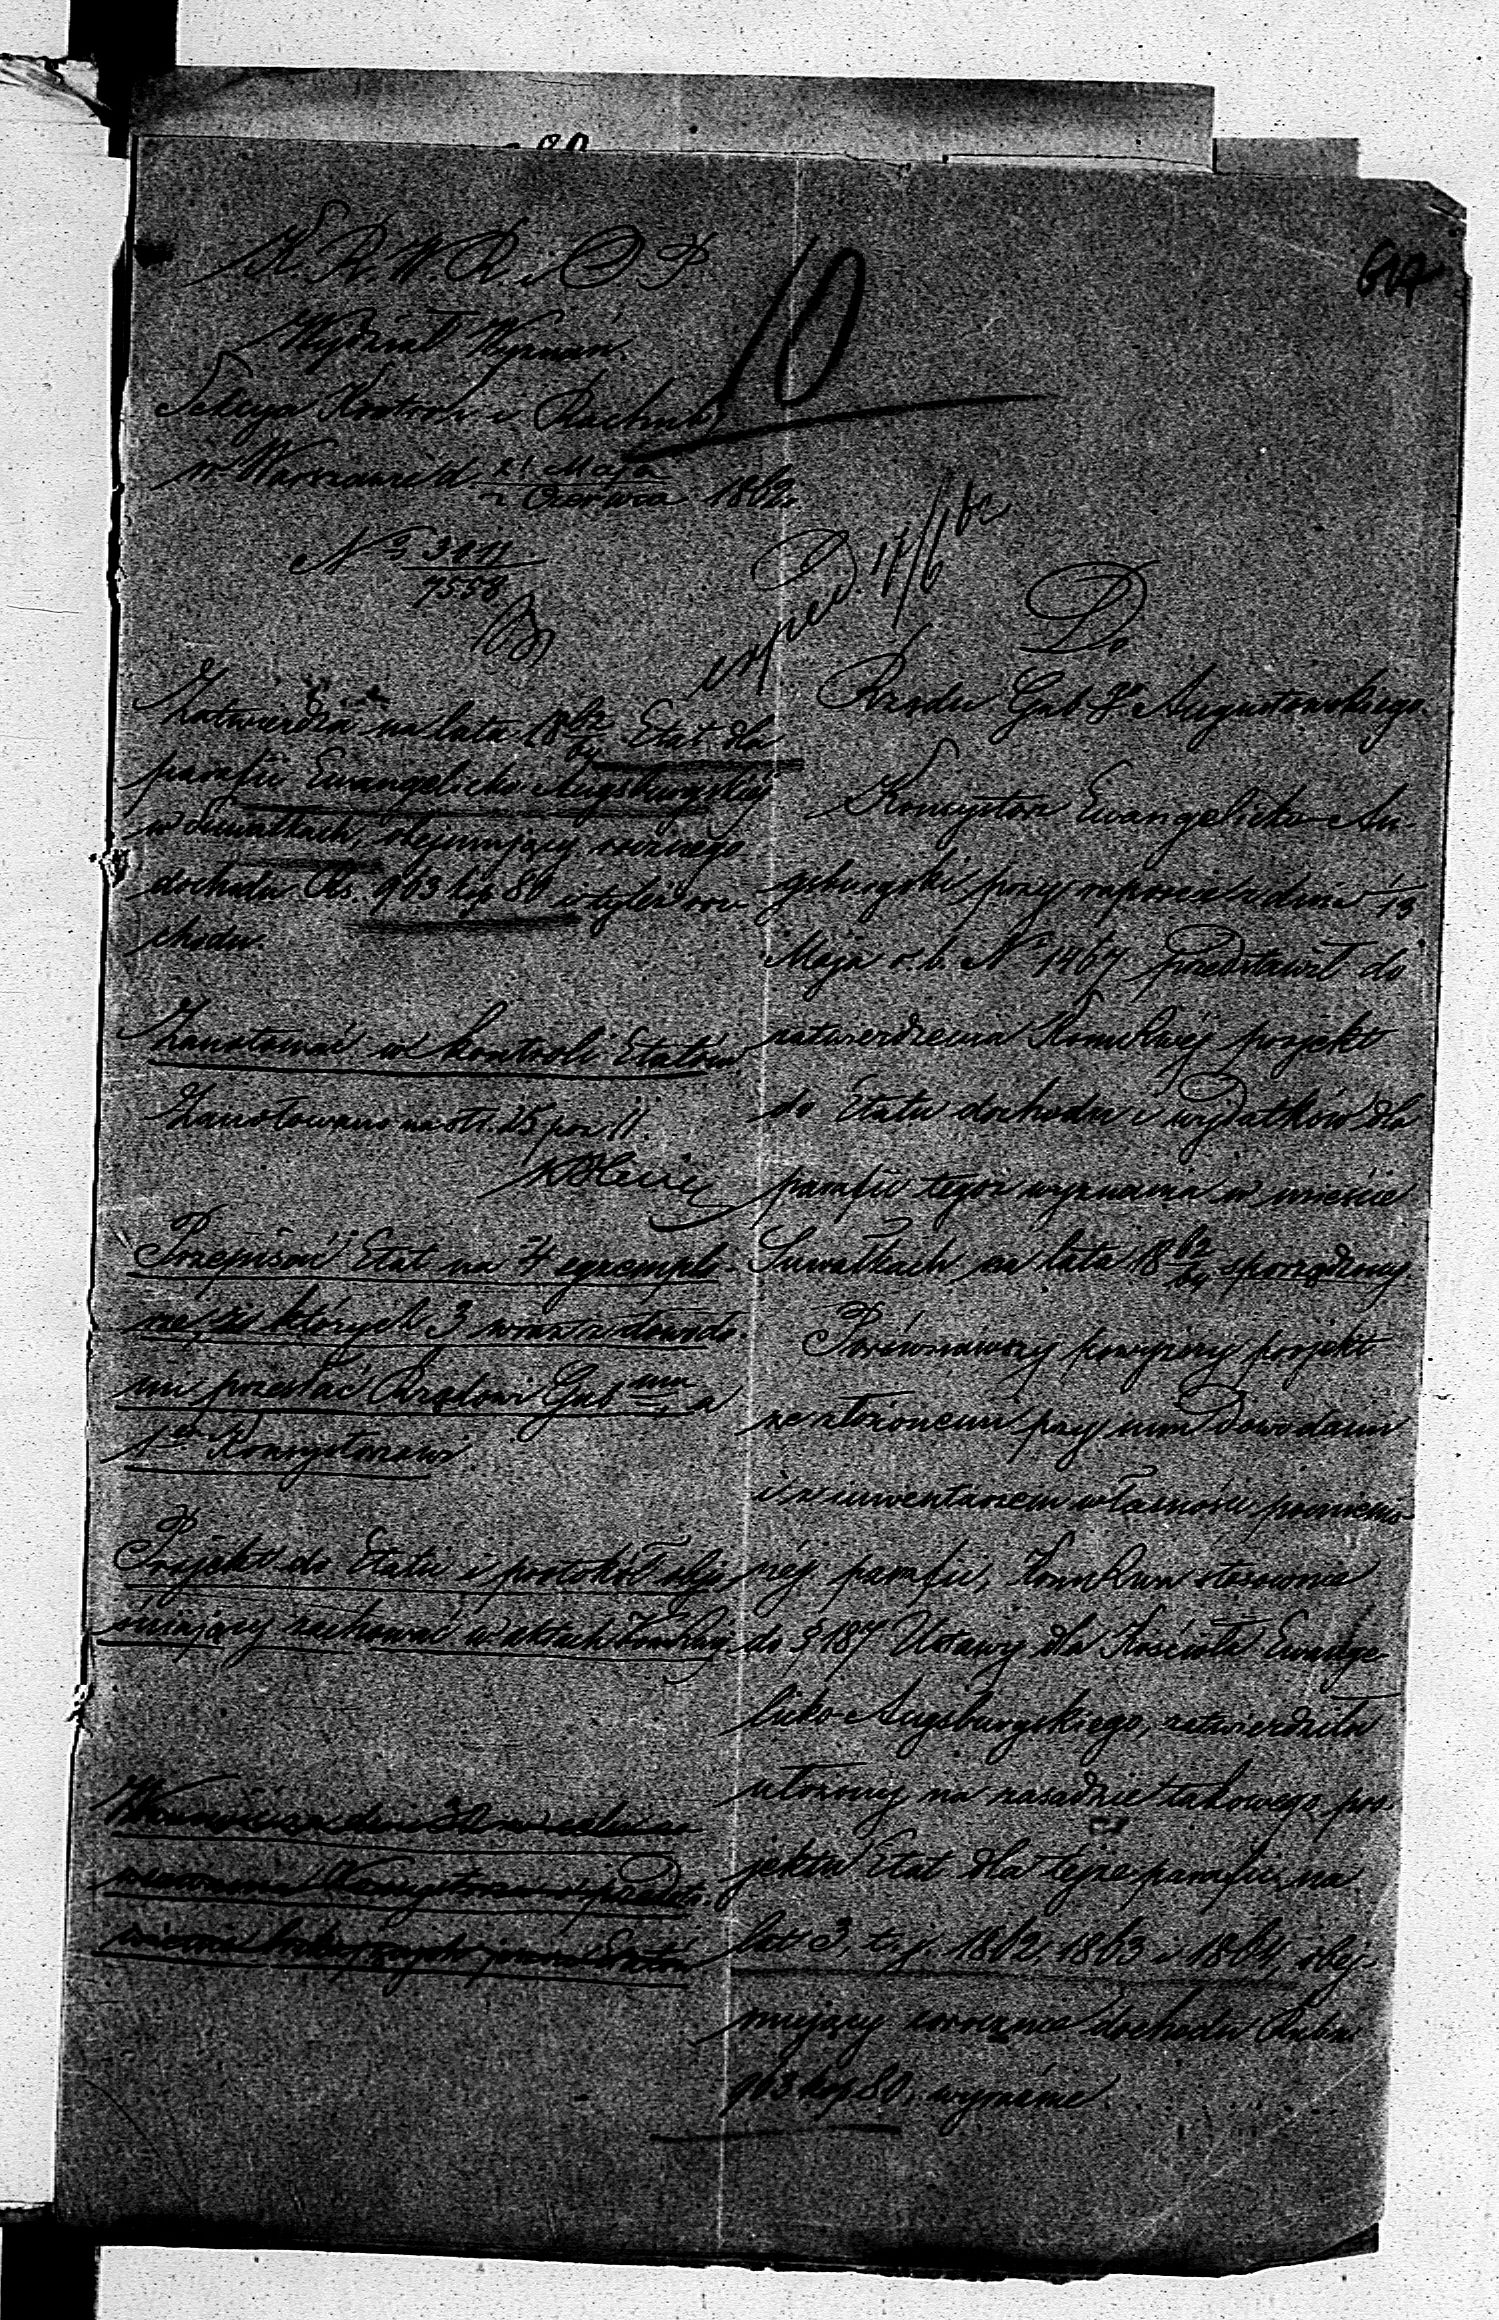 K. R. W. R. i O. P.
Wydział Wyznań.
Sekcya Kontroli i Rachub
w Warszawie d. 21 Maja / 2 Czerwca 1862.
№ 3011 / 7558
10
617
exped. 17/6 62
Zatwierdza na lata 18 62/64 Etat dla
parafii Ewangelicko Augsburgskiéj
w Suwałkach, obejmujący rocznego
dochodu Rs. 963 kop 80 i tyleż roz-
chodu.
Zanotować w kontroli Etatów
Zanotowano na str. 25 poz. 11.
Przepisać Etat na 4 egzempla-
rze, z których 3 wraz z dowoda-
mi przesłać Rządowi Gub mu, a
1en Konsystorzowi.
Projekt do Etatu i protokół obja-
śniający zachować w aktach
Do
Rządu Gub. Augustowskiego.
Konsystorz Ewangelicko-Au-
gsburgski przy raporcie z dnia 1/13
Maja r. b. № 1467 przedstawił do
zatwierdzenia projekt
do Etatu dochodu i wydatków dla
parafii tegoż wyznania w mieście
Suwałkach na lata 18 62/64 sporządzony.
Porównawszy powyższy projekt
ze złożonemi przy nim Dowodami
i z inwentarzem własności pomienio-
néj parafii, stosownie
do § 187 Ustawy dla Kościoła Ewange-
licko-Augsburgskiego, zatwierdziła
ułożony na zasadzie takowego pro-
jektu Etat dla téjże parafii, na
lat 3, t. j. 1862, 1863 i 1864, obej-
mujący corocznie dochodu Rubli
963 kop 80, wyraźnie